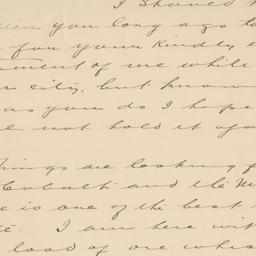 I should h
you long ago to
for your kindly
ment of me while
city, but know
as you do I hope
not hold it aga
Things are looking f
Cobalt and the M
e is one of the best
I am here wit
load of ore whic